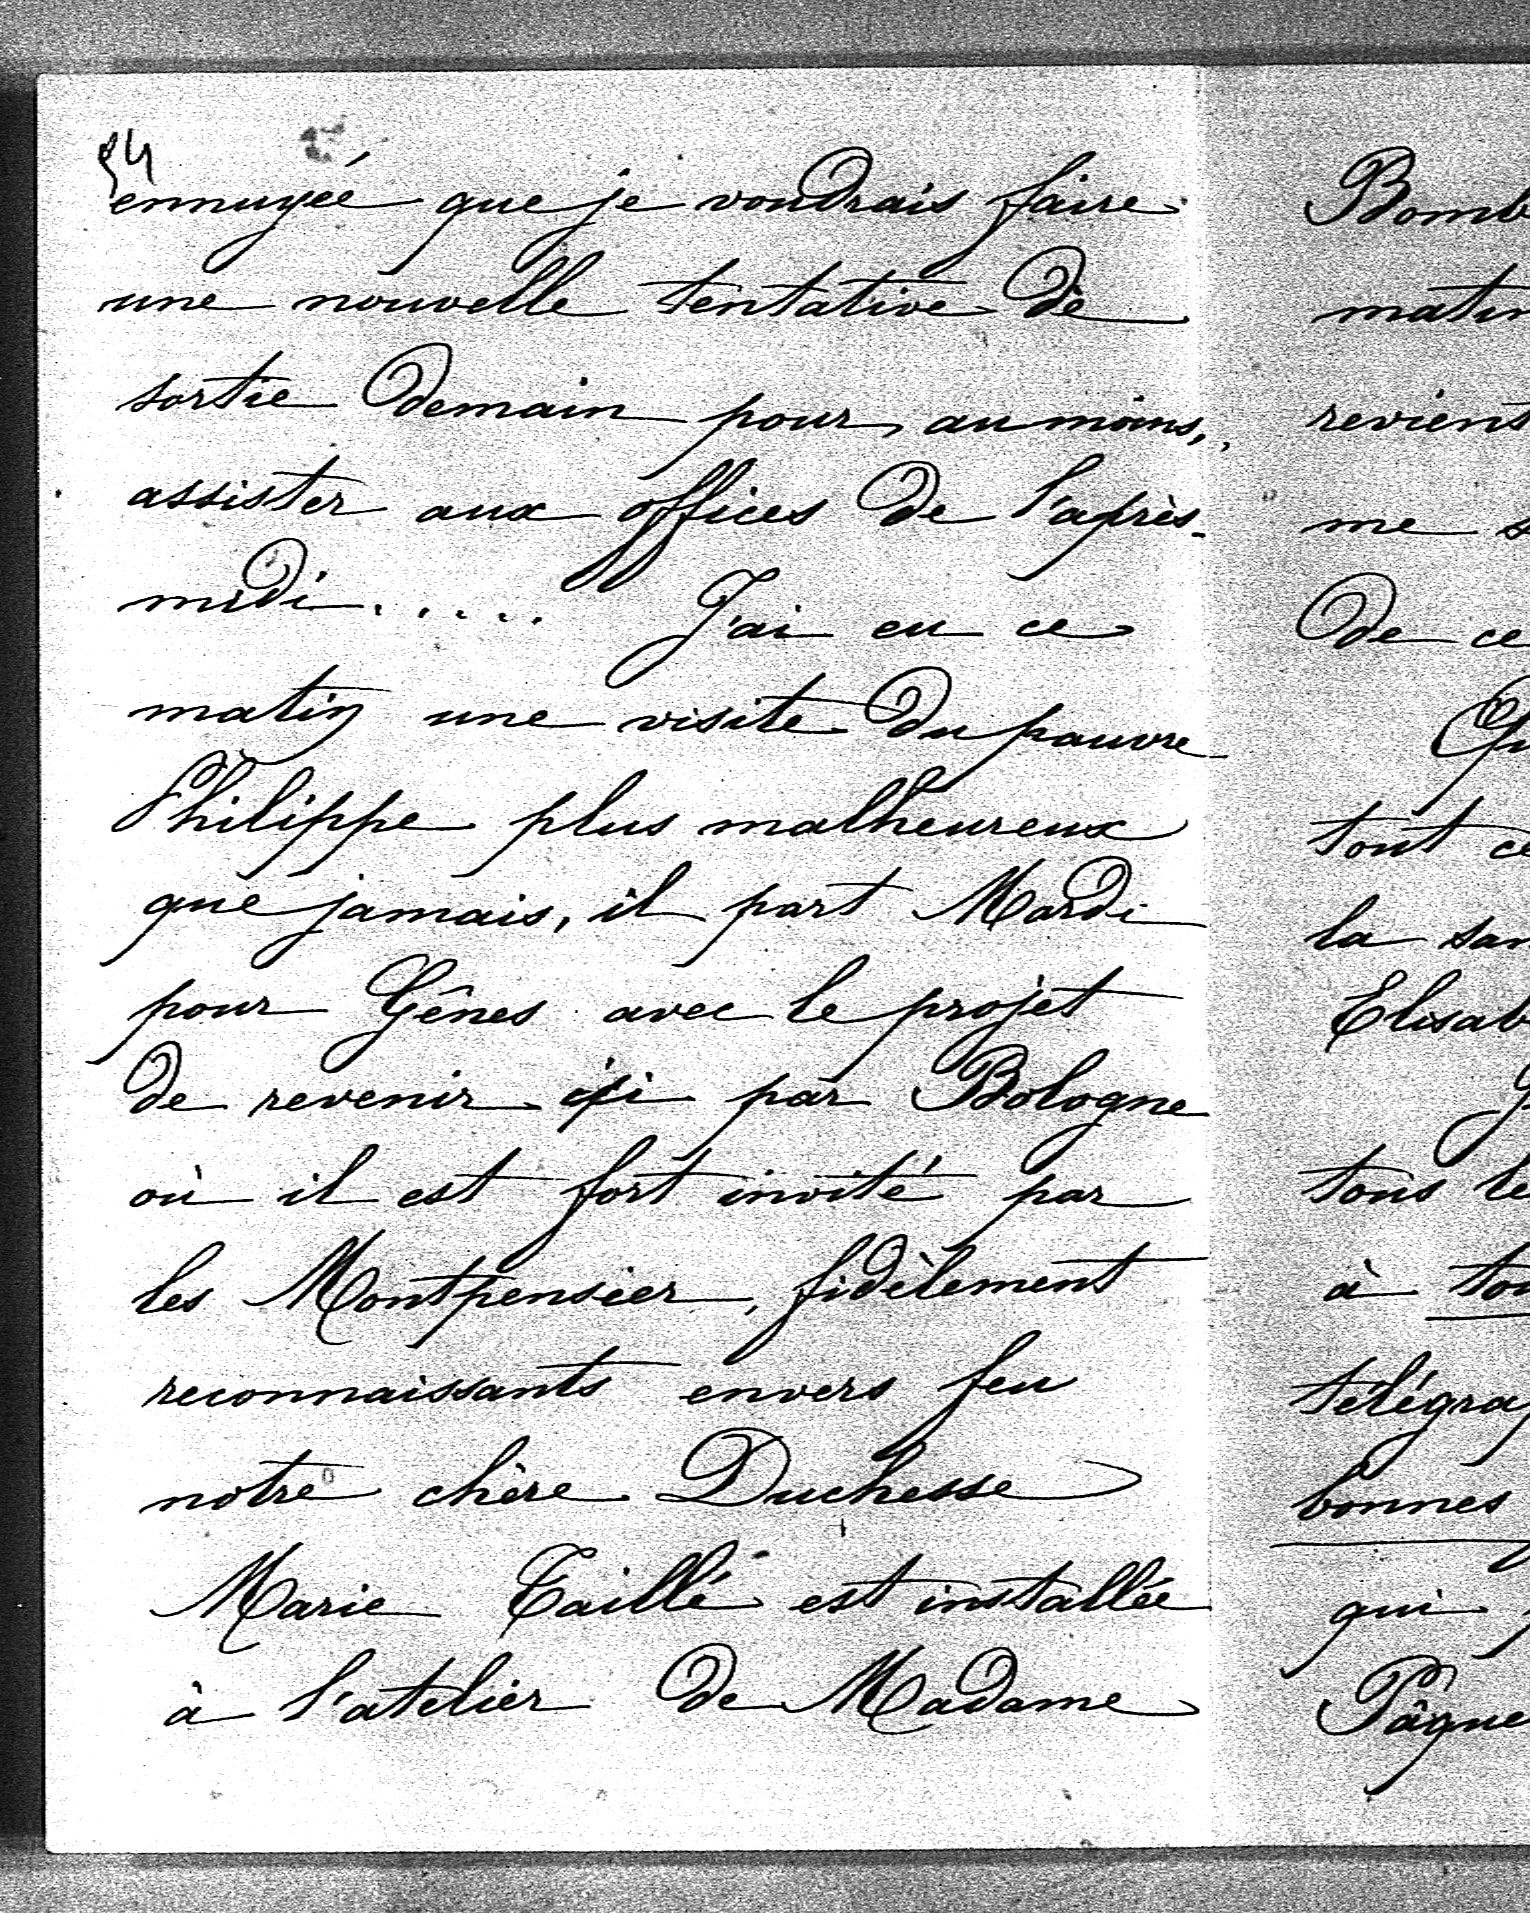 84
ennuyée que je voudrais faire
une nouvelle tentative de
sortie demain pour, au moins,
assister aux offices de l'après-
midi..... J'ai eu ce
matin une visite du pauvre
Philippe plus malheureux
que jamais, il part Mardi
pour Gênes avec le projet
de revenir ici par Bologne
où il est fort invité par
les Montpensier, fidèlement
reconnaissants envers feu
notre chère Duchesse
Marie Taillé est installée
à l'atelier de Madame
Bomb
matin
revient
me s
de ce
Qu
tout ce
la san
Elisab
J
tous le
à tou
télégrap
bonnes
qui
Pâque